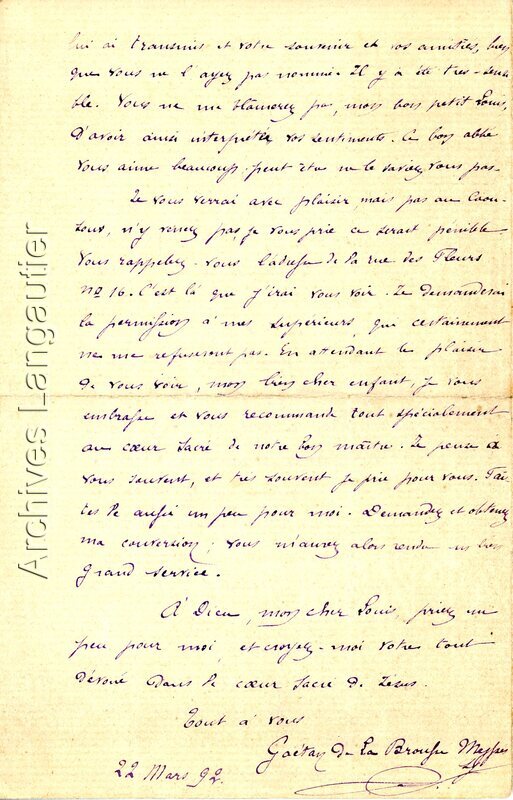 lui ai transmis et votre souvenir et vos amitiés, bien
que vous ne l'ayez pas nommé. Il y a été très-sensi-
ble. Vous ne me blâmerez pas, mon bon petit Louis,
d'avoir ainsi interprétée vos sentiments. Ce bon abbé
vous aime beaucoup peut être ne le saviez vous pas.
Je vous verrai avec plaisir mais pas au Caou-
sou, n'y venez pas, je vous prie ce serait pénible.
Vous rappelez-vous l'adresse de la rue des Fleurs
No 16. C'est là que j'irai vous voir. Je demanderai
la permission à mes supérieurs qui certainement
ne me refuseront pas. En attendant le plaisir
de vous voir, mon bien cher enfant, je vous
embrasse et vous recommande tout spécialement
au cœur sacré de notre bon maître. Je pense à
vous souvent, et très souvent je prie pour vous. Fai-
tes le aussi un peu pour moi. Demandez et obtenez
ma conversion; vous m'aurez alors rendu un bien
grand service.
À Dieu, mon cher Louis, priez un
peu pour moi et croyez-moi votre tout
dévoué dans le cœur sacré de Jésus.
Tout à vous
Gaëtan de La Brousse
22 Mars 92.
Archives Langautier